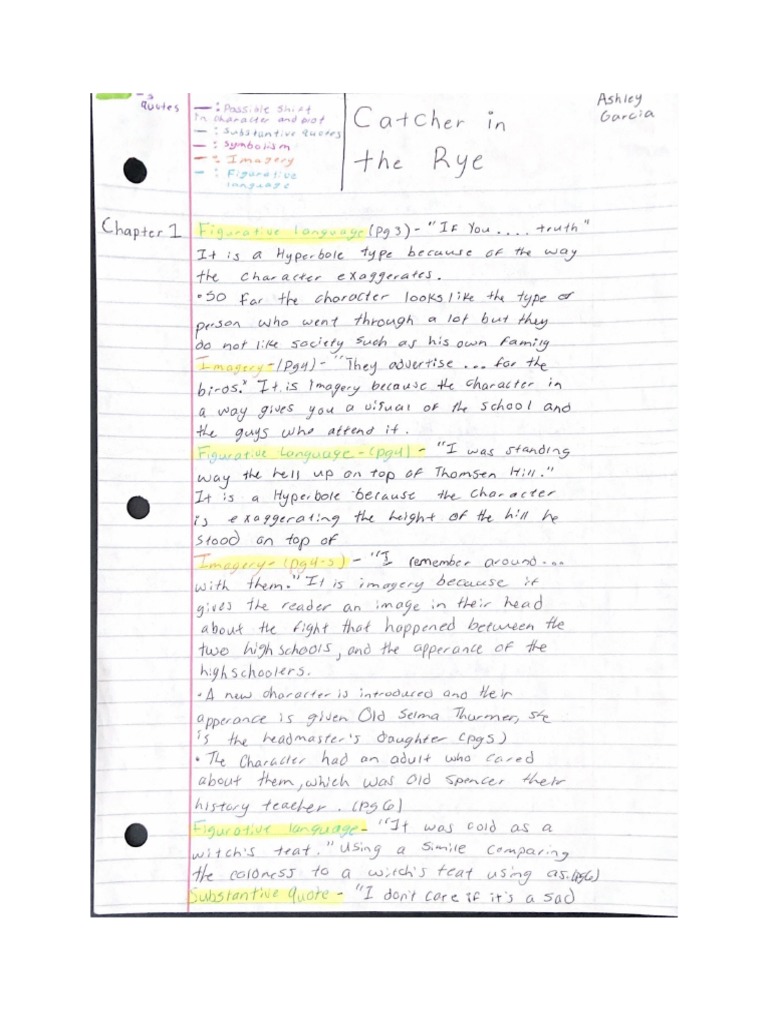 - 5
quotes
— : Possible shift
in character and plot
— : Substantive quotes
— : Symbolism
— : Imagery
— : Figurative
language
Catcher in
the Rye
Ashley
Garcia
Chapter 1
Figurative language (pg 3) - "If You .... truth"
It is a Hyperbole type because of the way
the character exaggerates.
• So far the character looks like the type of
person who went through a lot but they
do not like society such as his own family
Imagery - (pg4) - "They advertise ... for the
birds." It is Imagery because the character in
a way gives you a visual of the school and
the guys who attend it.
Figurative Language - (pg4) - "I was standing
way the hell up on top of Thomsen Hill."
It is a Hyperbole because the character
is exaggerating the height of the hill he
stood on top of
Imagery - (pg4-5) - "I remember around...
with them." It is imagery because it
gives the reader an image in their head
about the fight that happened between the
two high schools, and the apperance of the
highschoolers.
• A new character is introduced and their
apperance is given Old Selma Thurmer, she
is the headmaster's daughter (pg5)
• The Character had an adult who cared
about them, which was Old Spencer their
history teacher. (pg6)
Figurative language - "It was cold as a
witch's teat." Using a simile comparing
the coldness to a witch's teat using as. (pg6)
Substantive quote - "I don't care if it's a sad